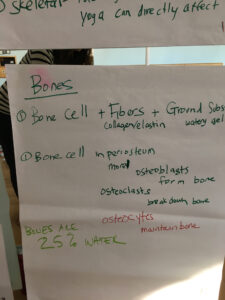 skeletal
yoga can directly affect
Bones
① Bone cell + Fibers + Ground Subs
collagen/elastin watery gel
① Bone cell in periosteum
more osteoblasts
form bone
osteoclasts
break down bone
osteocytes
maintain bone
BONES ARE
25% WATER